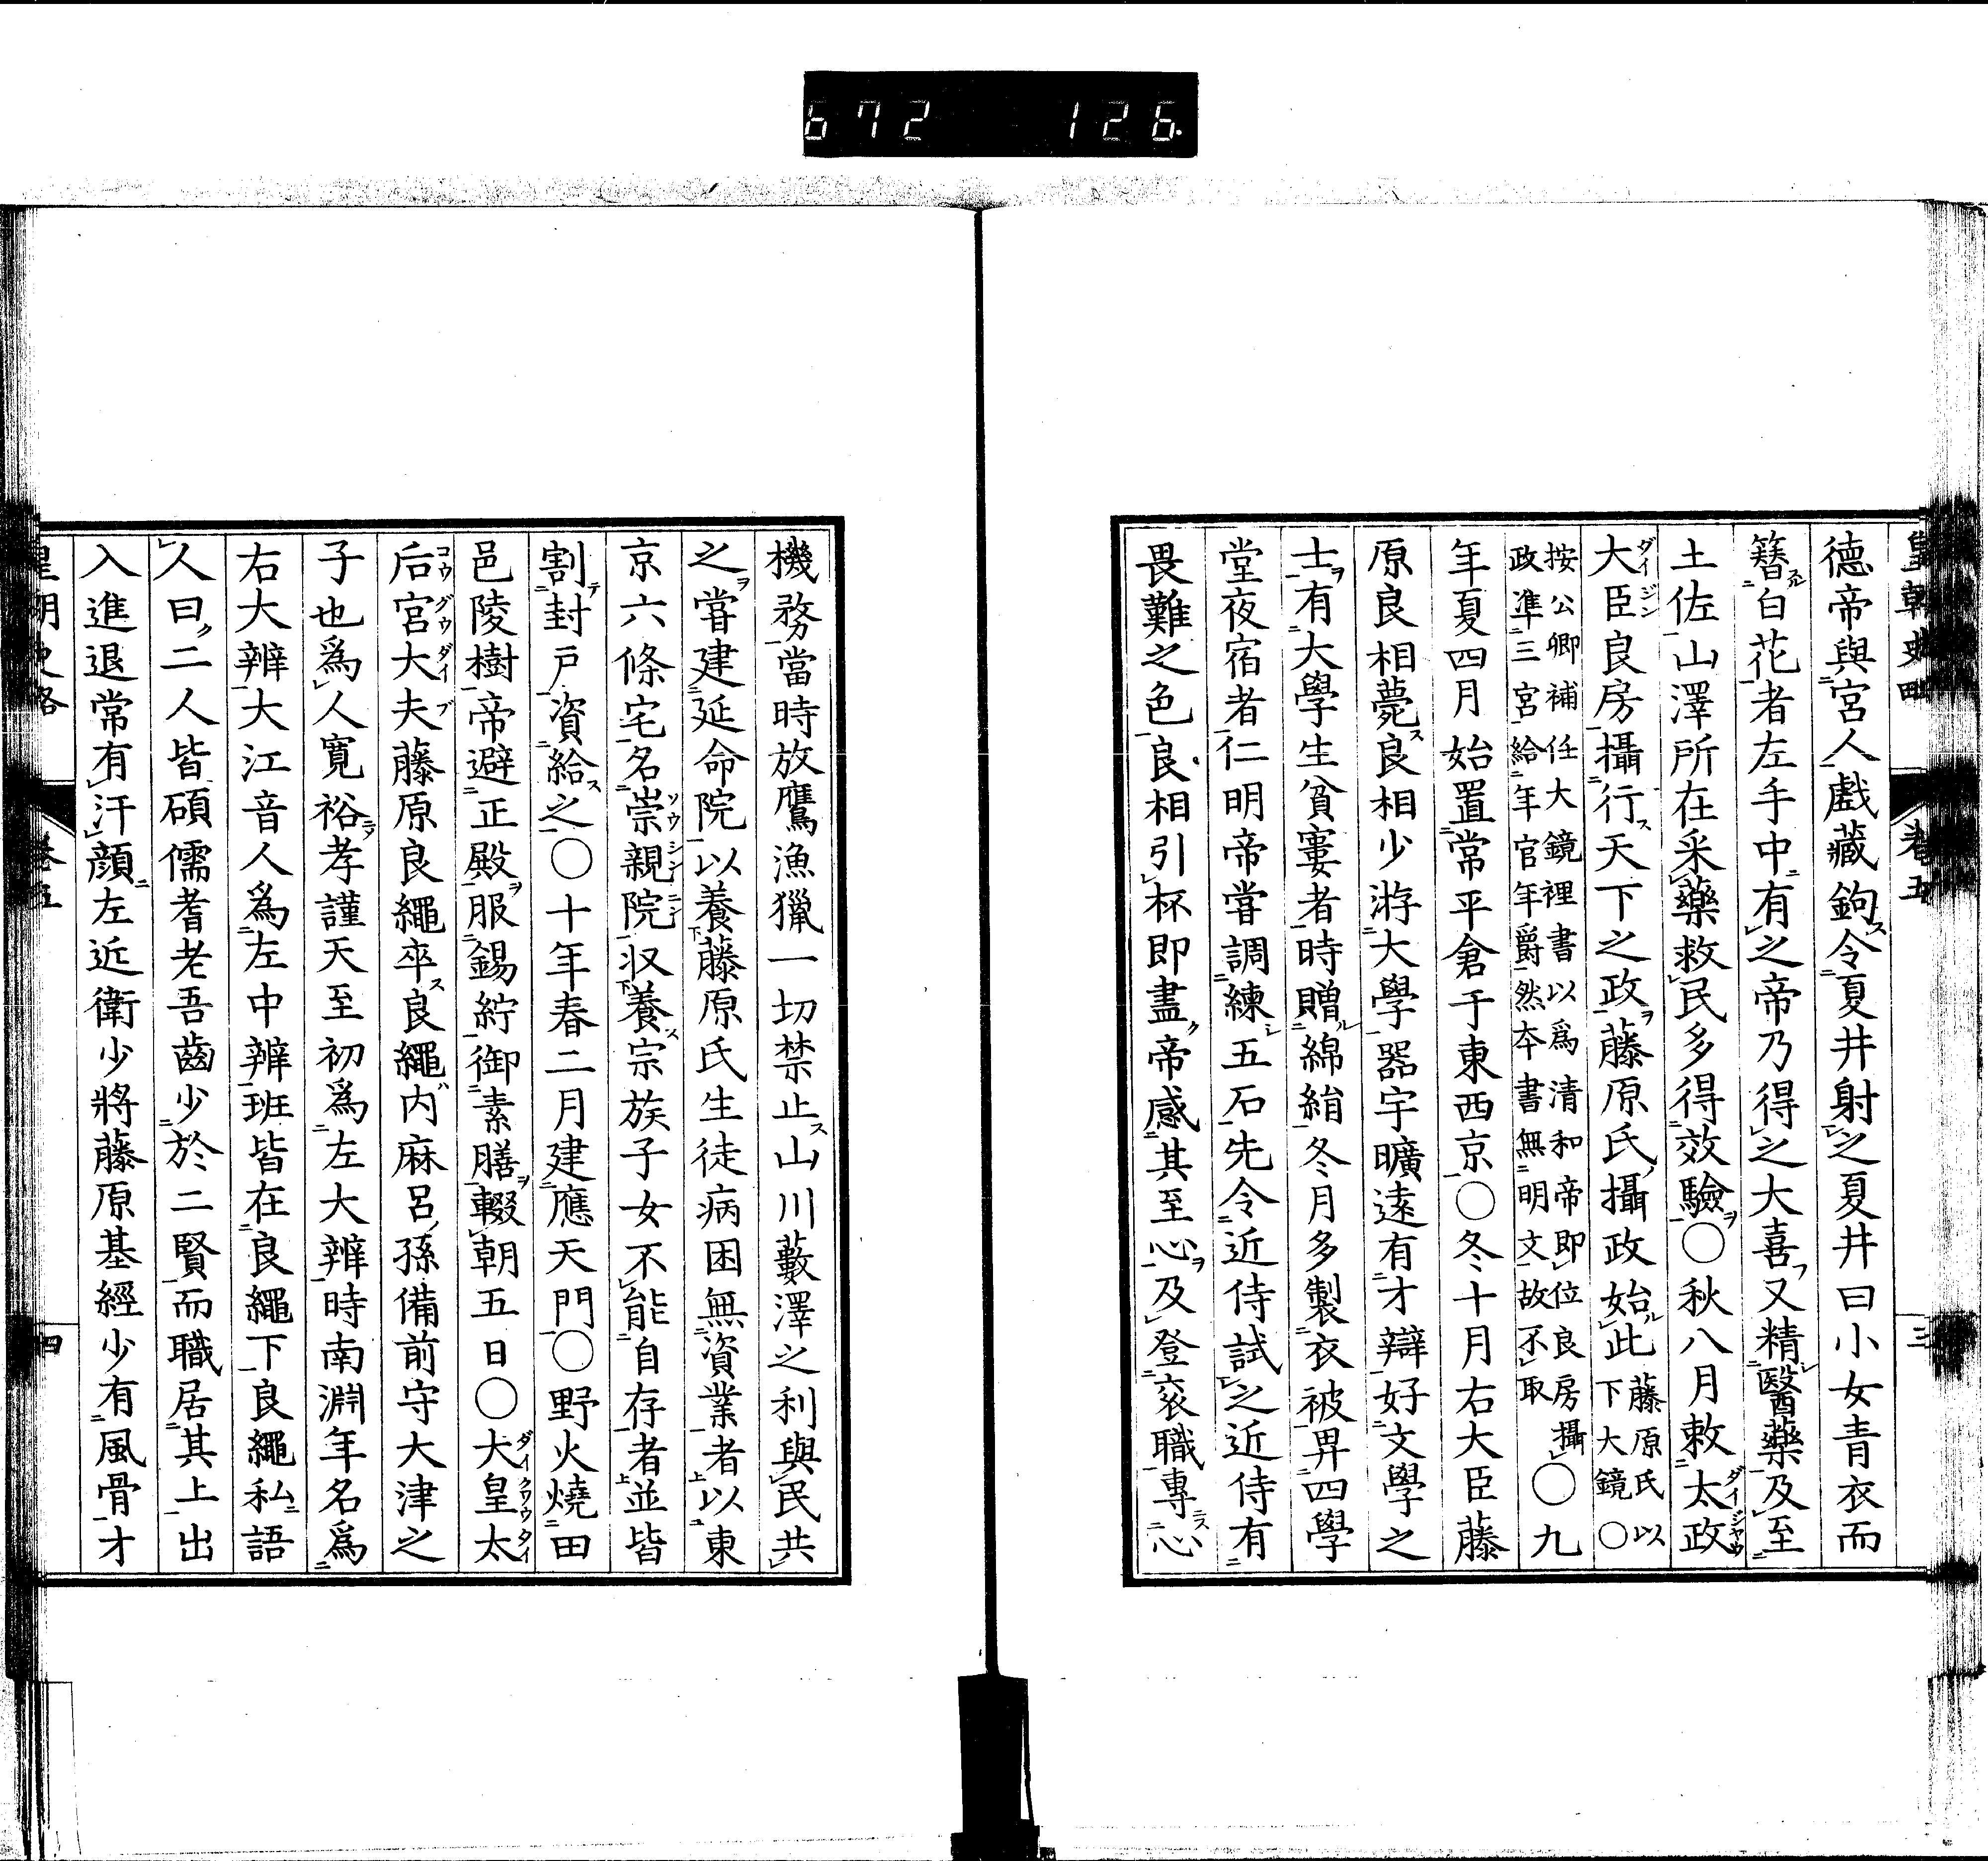 672 126.
皇朝史略 卷五 三
德帝與宮人戲藏鉤令夏井射之夏井曰小女青衣而
簪白花者左手中有之帝乃得之大喜又精醫藥及至
土佐山澤所在采藥救民多得效驗〇秋八月敕太政
大臣良房攝行天下之政藤原氏攝政始此藤原氏以下大鏡〇
按公卿補任大鏡裡書以爲清和帝即位良房攝
政準三宮給年官年爵然本書無明文故不取〇九
年夏四月始置常平倉于東西京〇冬十月右大臣藤
原良相薨良相少游大學器宇曠遠有才辯好文學之
士有大學生貧寠者時贈綿絹冬月多製衣被畀四學
堂夜宿者仁明帝嘗調練五石先令近侍試之近侍有
畏難之色良相引杯即盡帝感其至心及登袞職專心
機務當時放鷹漁獵一切禁止山川藪澤之利與民共
之嘗建延命院以養藤原氏生徒病困無資業者以東
京六條宅名崇親院収養宗族子女不能自存者並皆
割封戸資給之〇十年春二月建應天門〇野火燒田
邑陵樹帝避正殿服錫紵御素膳輟朝五日〇大皇太
后宮大夫藤原良繩卒良繩内麻呂孫備前守大津之
子也爲人寬裕孝謹天至初爲左大辨時南淵年名爲
右大辨大江音人爲左中辨班皆在良繩下良繩私語
人曰二人皆碩儒耆老吾齒少於二賢而職居其上出
入進退常有汗顔左近衛少將藤原基經少有風骨才
皇朝史略 卷五 四